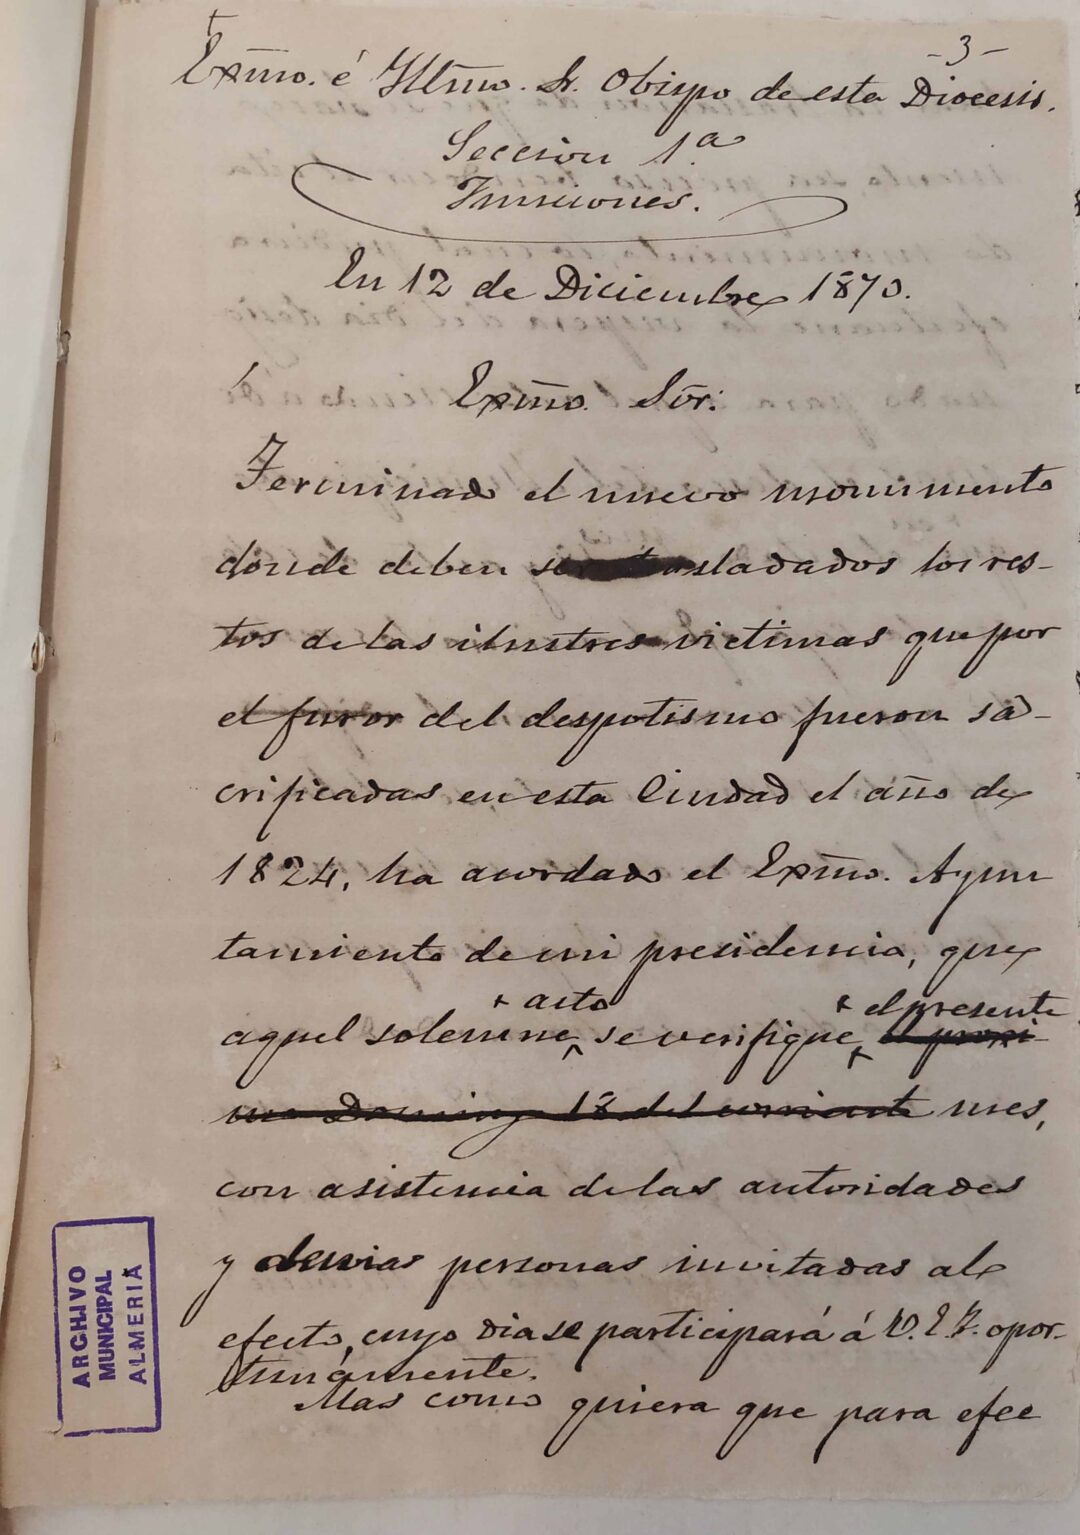 -3-
Exm̃o. é Iltm̃o. Sr. Obispo de esta Diocesis.
Seccion 1.ª
Funciones.
En 12 de Diciembre 1870.
Exm̃o. Sõr:
Terminado el nuevo monumento
donde deben ser trasladados los res-
tos de las ilustres victimas que por
el furor del despotismo fueron sa-
crificadas en esta Ciudad el año de
1824, ha acordado el Exm̃o. Ayun
tamiento de mi presidencia, que
+ acto + el presente
aquel solemne se verifique el proxi-
mo Domingo 18 del corriente mes,
con asistencia de las autoridades
y demas personas invitadas al
efecto, cuyo dia se participará á V.E.I. opor-
tunamente.
Mas como quiera que para efec
ARCHIVO
MUNICIPAL
ALMERIA